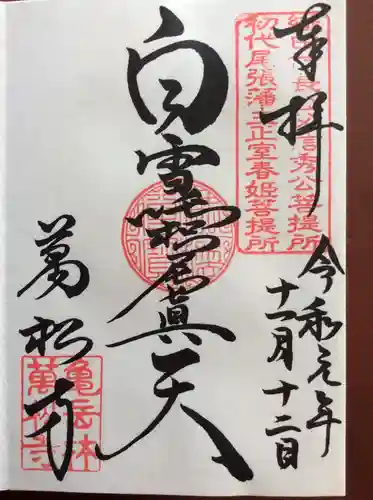 奉拝
令和元年
十一月十二日
織田信長公父信秀公菩提所
初代尾張藩主正室春姫菩提所
白雪稲荷眞天
萬松寺
亀岳林
萬松寺